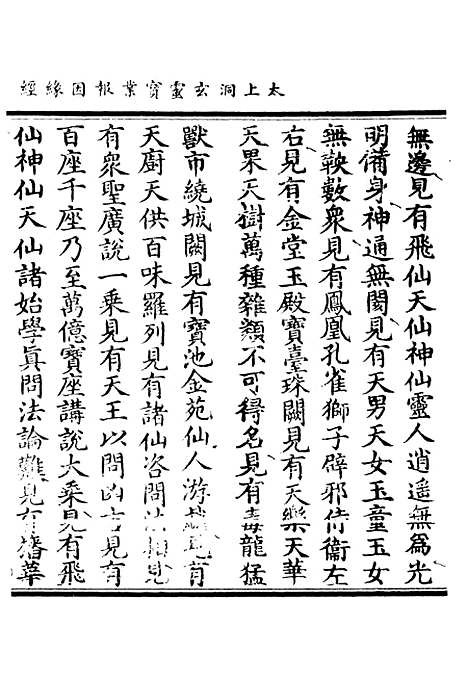 太上洞玄靈寶業報因緣經
無邊見有飛仙天仙神仙靈人逍遥無爲光
明備身神通無閡見有天男天女玉童玉女
無鞅數衆見有鳳凰孔雀獅子辟邪侍衛左
右見有金堂玉殿寶臺珠闕見有天樂天華
天果天樹萬種雜類不可得名見有毒龍猛
獸市繞城闕見有寶池金苑仙人游見有
天廚天供百味羅列見有諸仙咨問法見
有衆聖廣說一乘見有天王以問凶吉見有
百座千座乃至萬億寶座講說大乘見有飛
仙神仙天仙諸始學真問法論難見有旛華